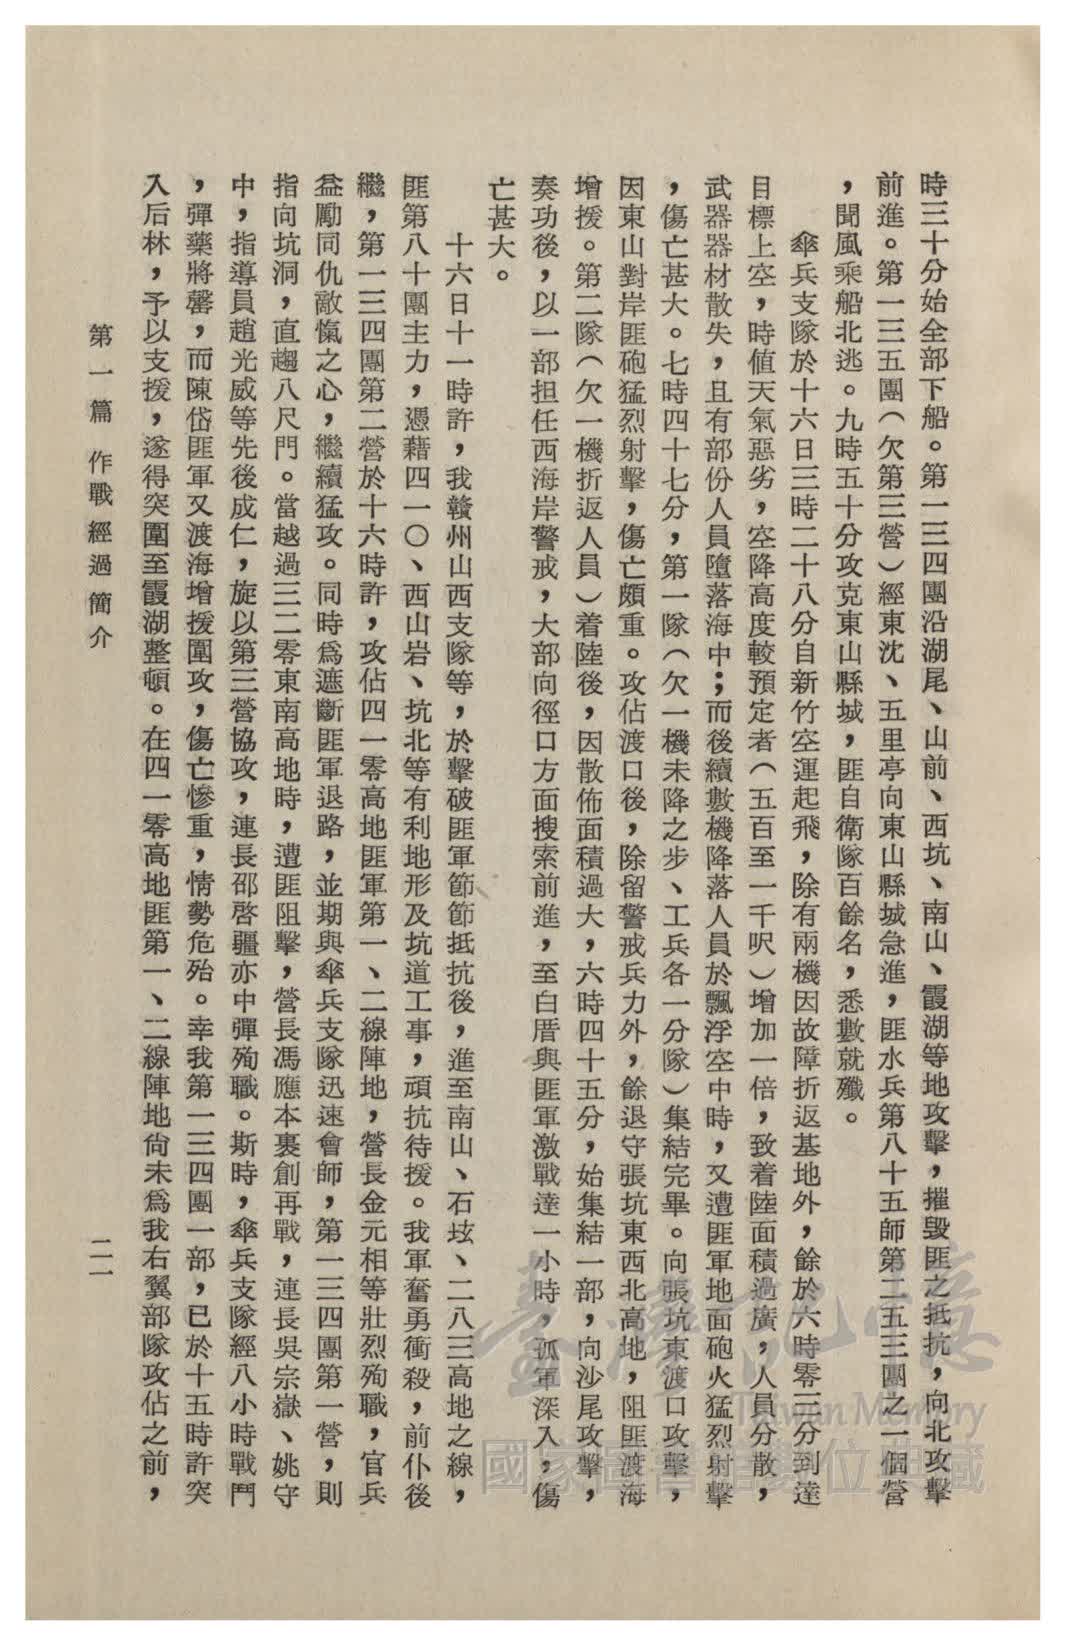 時三十分始全部下船。第一三四團沿湖尾、山前、西坑、南山、霞湖等地攻擊，摧毀匪之抵抗，向北攻擊
前進。第一三五團（欠第三營）經東沈、五里亭向東山縣城急進，匪水兵第八十五師第二五三團之一個營
，聞風乘船北逃。九時五十分攻克東山縣城，匪自衛隊百餘名，悉數就殲。
傘兵支隊於十六日三時二十八分自新竹空運起飛，除有兩機因故障折返基地外，餘於六時零三分到達
目標上空，時值天氣惡劣，空降高度較預定者（五百至一千呎）增加一倍，致着陸面積過廣，人員分散，
武器器材散失，且有部份人員墮落海中；而後續數機降落人員於飄浮空中時，又遭匪軍地面砲火猛烈射擊
，傷亡甚大。七時四十七分，第一隊（欠一機未降之步、工兵各一分隊）集結完畢。向張坑東渡口攻擊，
因東山對岸匪砲猛烈射擊，傷亡頗重。攻佔渡口後，除留警戒兵力外，餘退守張坑東西北高地，阻匪渡海
增援。第二隊（欠一機折返人員）着陸後，因散佈面積過大，六時四十五分，始集結一部，向沙尾攻擊，
奏功後，以一部担任西海岸警戒，大部向徑口方面搜索前進，至白厝與匪軍激戰達一小時，孤軍深入，傷
亡甚大。
十六日十一時許，我贛州山西支隊等，於擊破匪軍節節抵抗後，進至南山、石坫、二八三高地之線，
匪第八十團主力，憑藉四一〇、西山岩、坑北等有利地形及坑道工事，頑抗待援。我軍奮勇衝殺，前仆後
繼，第一三四團第二營於十六時許，攻佔四一零高地匪軍第一、二線陣地，營長金元相等壯烈殉職，官兵
益勵同仇敵愾之心，繼續猛攻。同時為遮斷匪軍退路，並期與傘兵支隊迅速會師，第一三四團第一營，則
指向坑洞，直趨八尺門。當越過三二零東南高地時，遭匪阻擊，營長馮應本裹創再戰，連長吳宗嶽、姚守
中，指導員趙光威等先後成仁，旋以第三營協攻，連長邵啓疆亦中彈殉職。斯時，傘兵支隊經八小時戰鬥
，彈藥將罄，而陳岱匪軍又渡海增援圍攻，傷亡慘重，情勢危殆。幸我第一三四團一部，已於十五時許突
入后林，予以支援，遂得突圍至霞湖整頓。在四一零高地匪第一、二線陣地尙未為我右翼部隊攻佔之前，
第一篇 作戰經過簡介
二一
臺灣記憶
Taiwan Memory
國家圖書館數位典藏